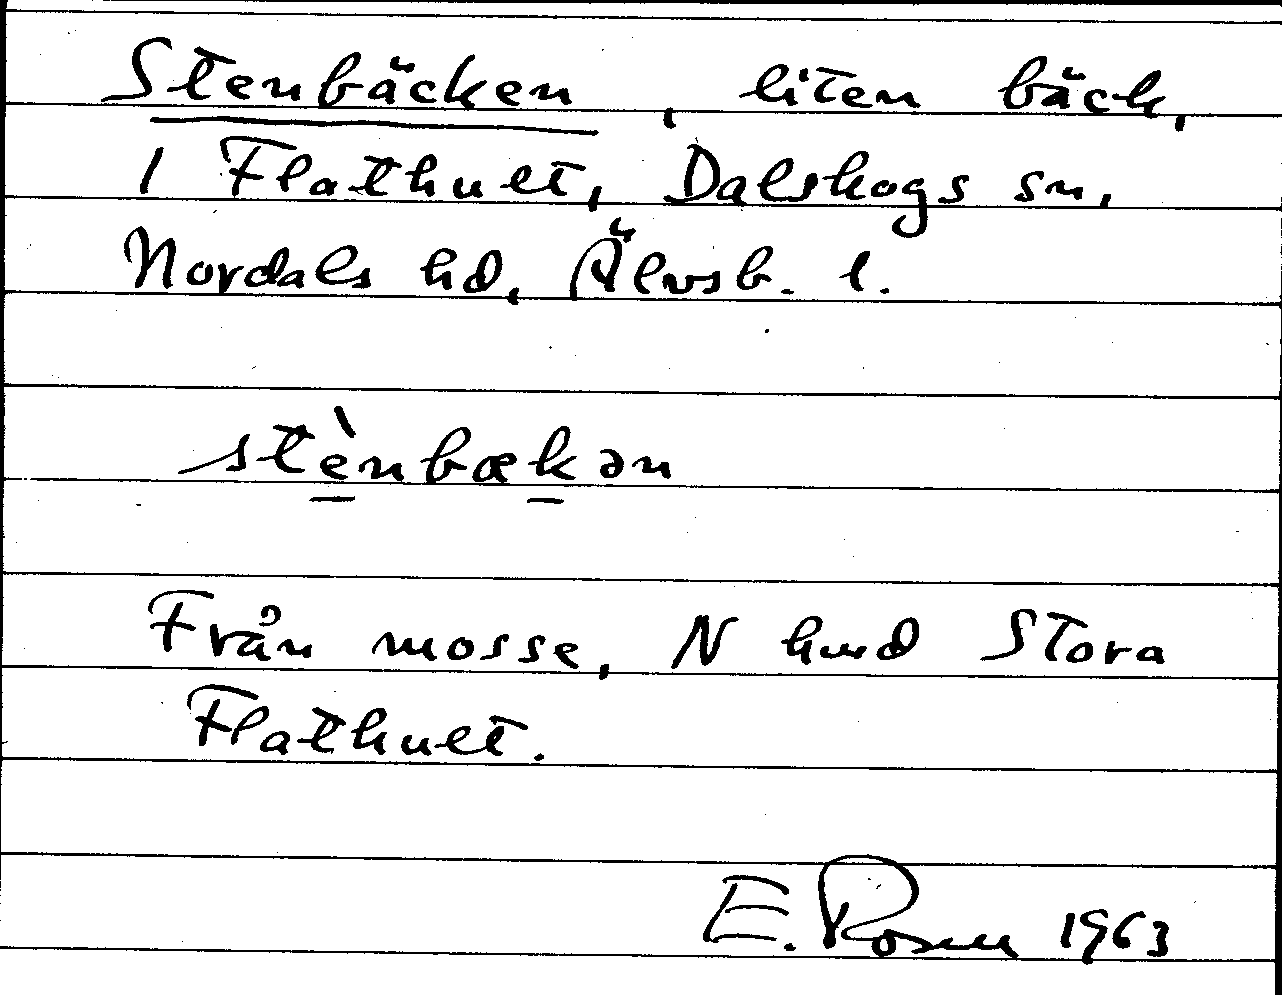 Stenbäcken, liten bäck,
1 Flathult, Dalskogs sn,
Nordals hd, Älvsb. l.
stènbækən
Från mosse, N hmd Stora
Flathult.
E. Rosen 1963